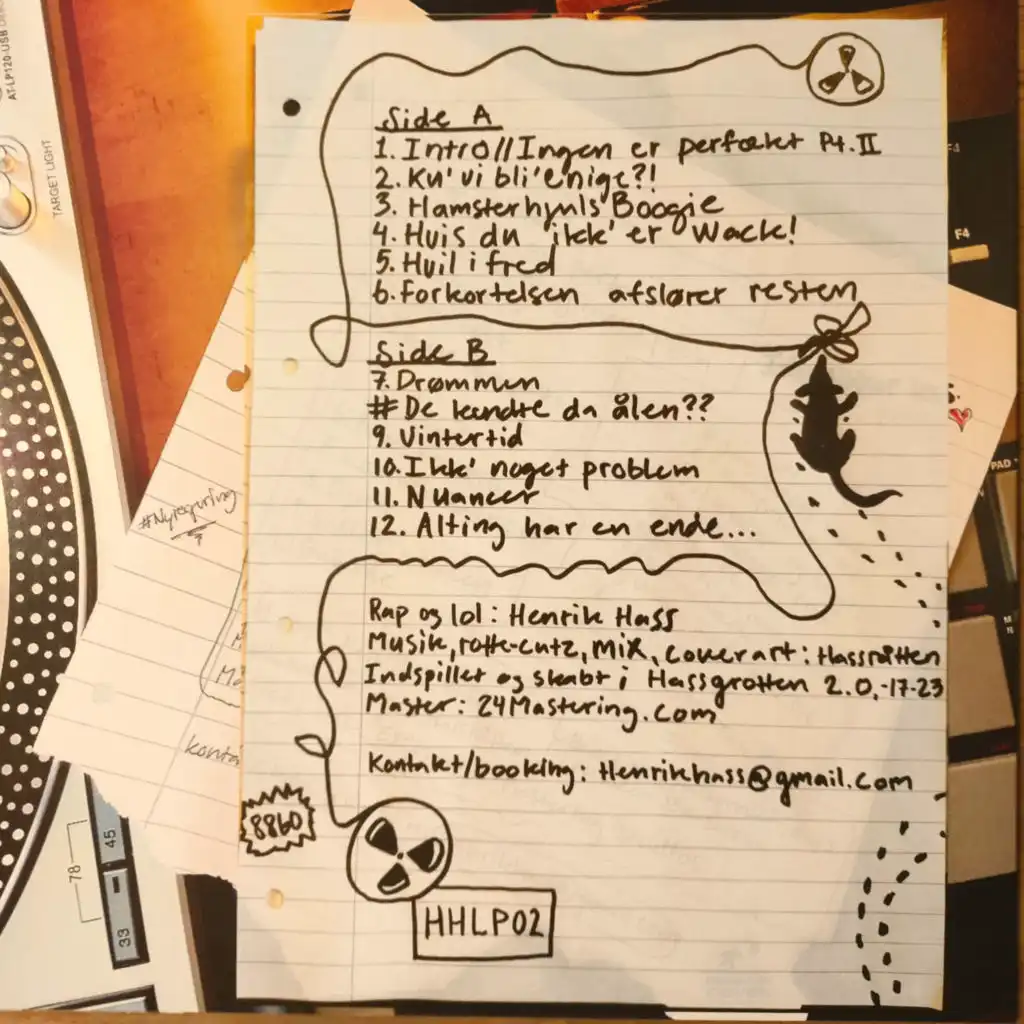 AT-LP120-USB
TARGET LIGHT
Side A
1. Intro//Ingen er perfækt Pt. II
2. Ku' vi bli' enige?!
3. Hamsterhjuls Boogie
4. Hvis du ikk' er Wack!
5. Hvil i fred
6. Forkortelsen afslører resten
Side B
7. Drømmen
# De kendte da ålen??
9. Vintertid
10. Ikk' noget problem
11. Nuancer
12. Alting har en ende...
Rap og lol: Henrik Hass
Musik, rotte-cutz, mix, coverart: Hassrotten
Indspillet og skabt i Hassgrotten 2.0,-17-23
Master: 24Mastering.com
Kontakt/booking: Henrikhass@gmail.com
8860
HHLP02
F4
F4
PAD
78
45
33